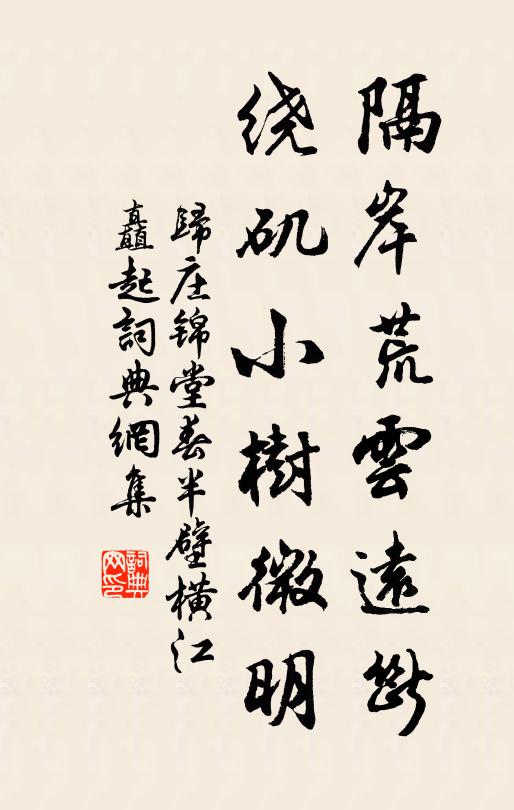 隔岸荒雲遠斷
绕矶小樹微明
歸庄锦堂春半壁横江
矗起詞典網集
詞典网印